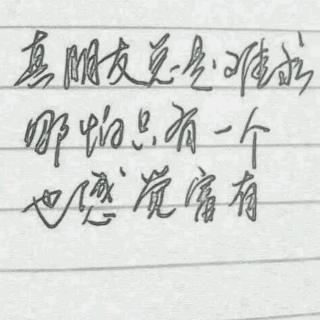 真朋友总是难求
哪怕只有一个
也感觉富有